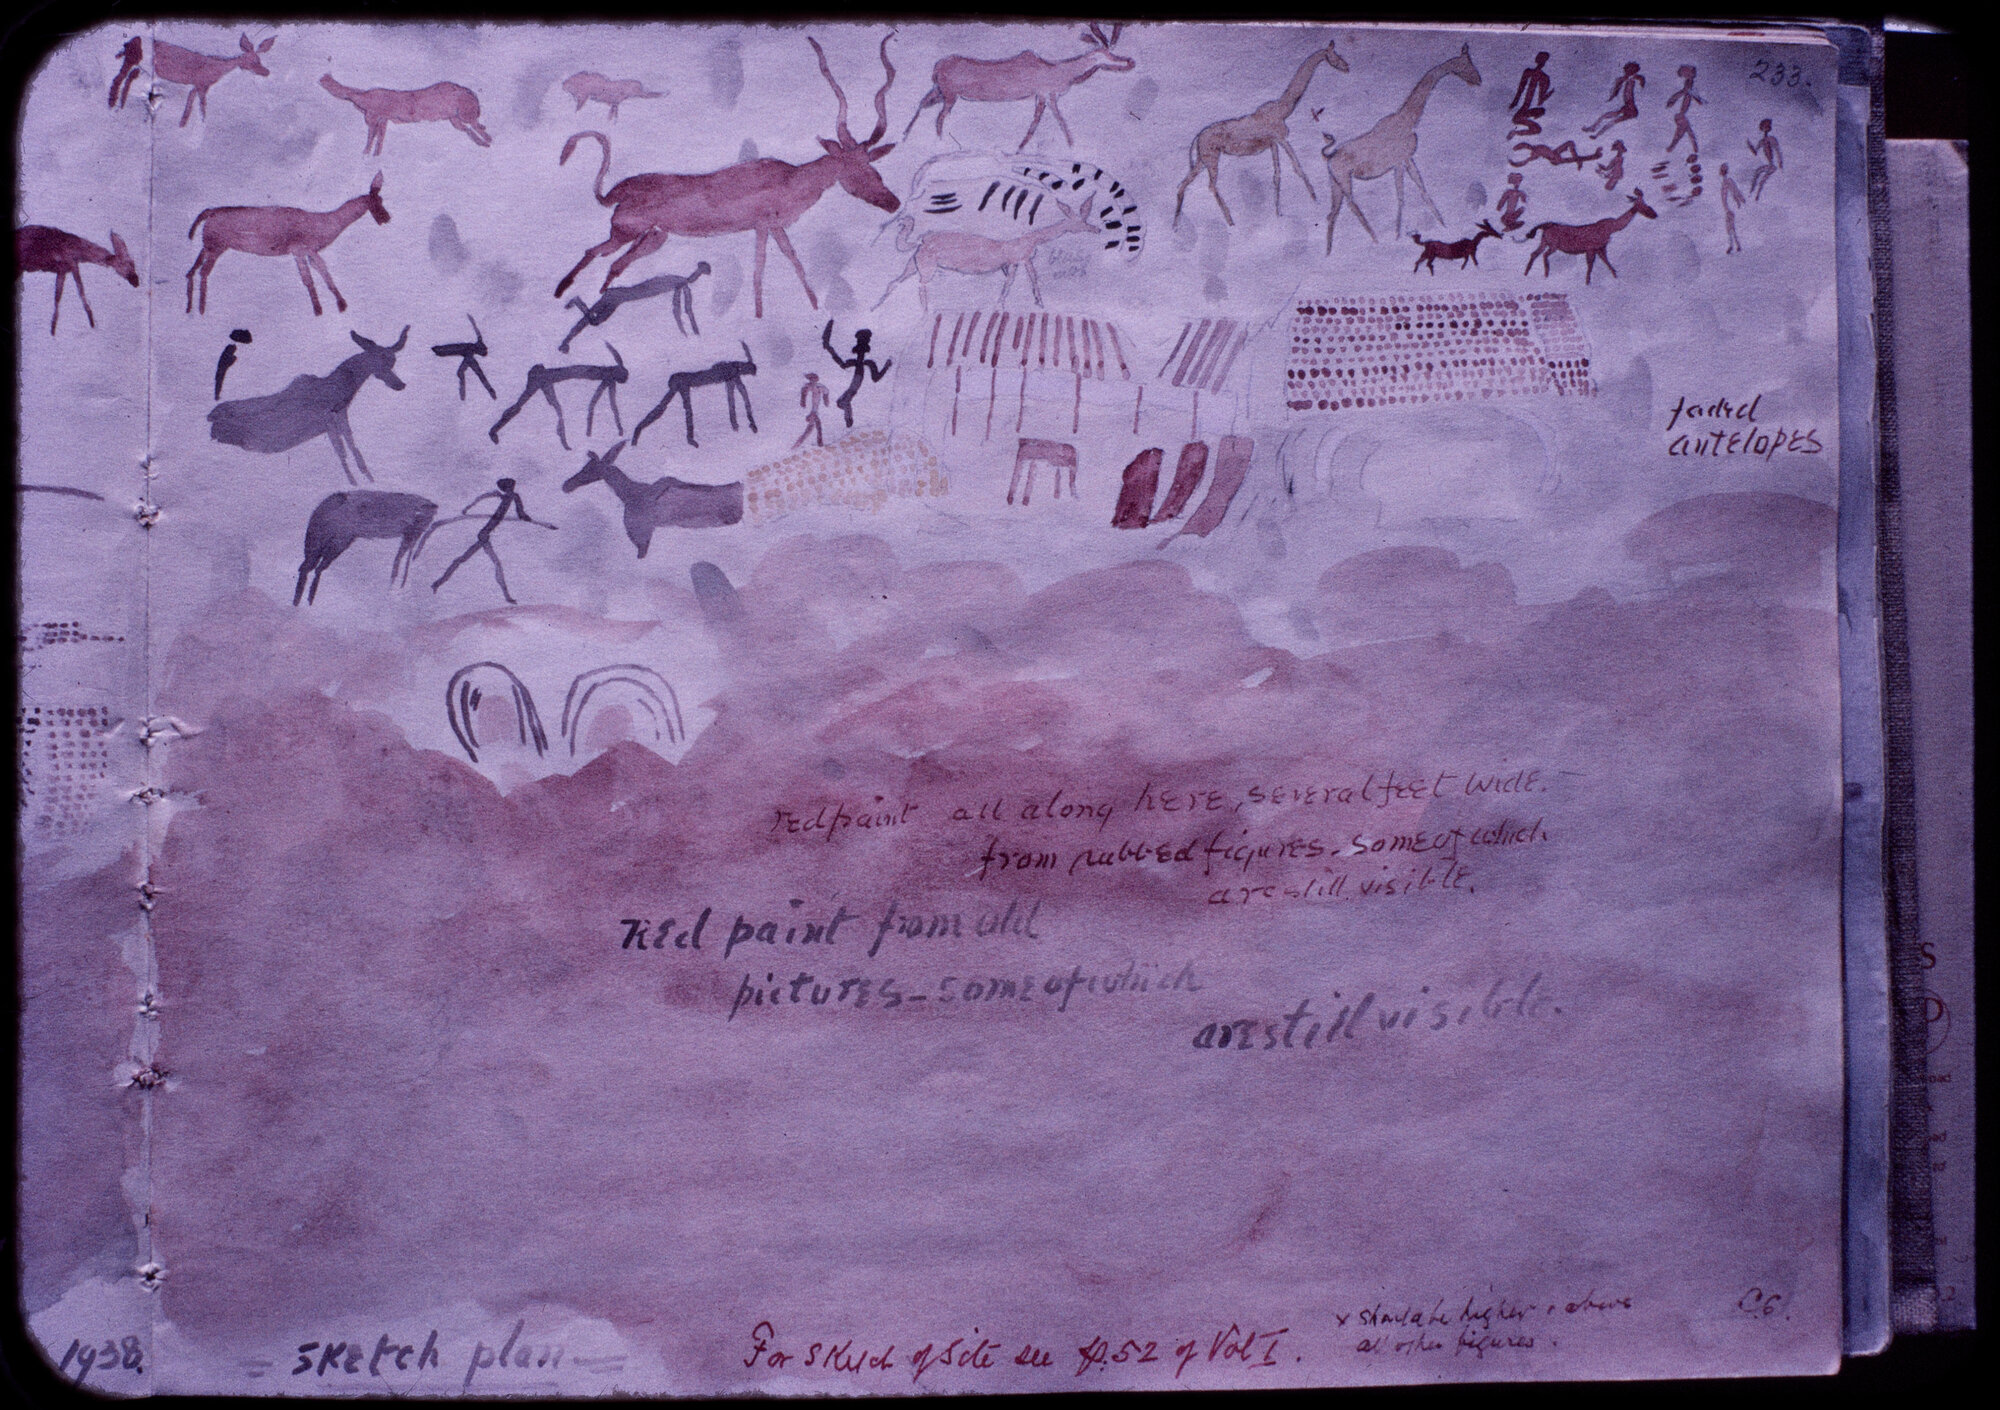 233.
faded
antelopes
red paint all along here, several feet wide.
from rubbed figures. some of which
are still visible.
Red paint from old
pictures - some of which
are still visible.
1938.
= sketch plan =
For Sketch of Site see p. 52 of Vol I.
x should be higher & above
all other figures.
C.G.